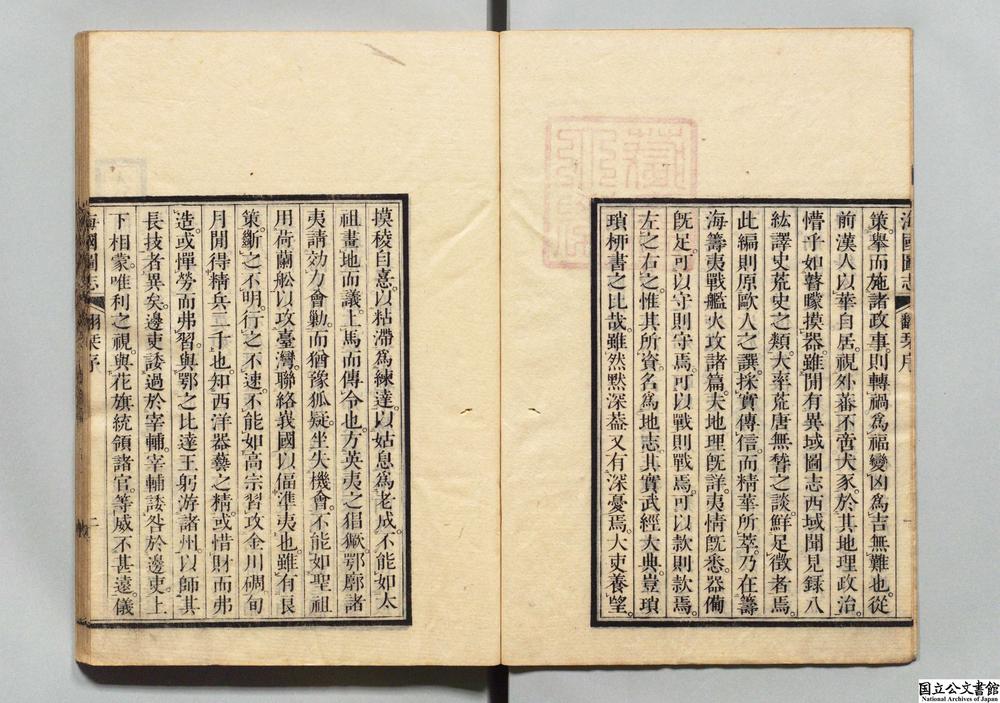 海國圖志 翻栞序 一
策。擧而施諸政事。則轉禍爲福。變凶爲吉。無難也。從
前漢人以華自居。視外蕃不啻犬豕。於其地理政治。
懵乎如瞽矇摸器。雖間有異域圖志西域聞見録八
紘譯史荒史之類。大率荒唐無瞀之談。鮮足徵者焉。
此編則原歐人之譔。採實傳信。而精華所萃。乃在籌
海籌夷戰艦火攻諸篇。夫地理旣詳。夷情旣悉。器備
旣足。可以守則守焉。可以戰則戰焉。可以款則款焉。
左之右之。惟其所資。名爲地志。其實武經大典。豈瑣
瑣柳書之比哉。雖然默深葢又有深憂焉。大吏養望。
摸稜自憙。以粘滯爲練達。以姑息爲老成。不能如太
祖畫地而議。上馬而傳令也。方英夷之猖獗。鄂廓諸
夷請効力會勦。而猶豫狐疑。坐失機會。不能如聖祖
用荷蘭舩以攻臺灣。聯絡我國以偪準夷也。雖有良
策。斷之不明。行之不速。不能如高宗習攻金川碉。旬
月閒得精兵二千也。知西洋器藝之精。或惜財而弗
造。或憚勞而弗習。與鄂之比達王躬游諸州。以師其
長技者異矣。邊吏諉過於宰輔。宰輔諉咎於邊吏。上
下相蒙。唯利之視。與花旗統領諸官等威不甚遠。儀
海國圖志 翻栞序 二
国立公文書館
National Archives of Japan